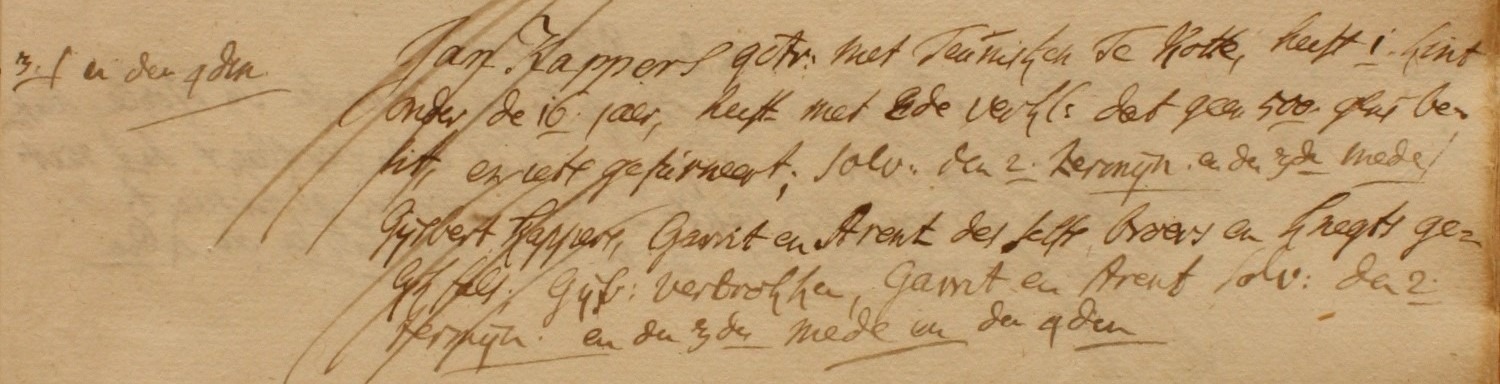 3. f en den 4den
Jan Kappers getr: met Teunisken Te Kotte, heeft 1. kint
onder de 16. jaer, heeft met Ede verkl: dat geen 500. glns be-
sit, en iets gefurneert; solv: den 2. termijn en den 3de mede
Gijsbert Kappers, Garrit en Arent des selfs broers en knegts ge-
Gijsb: vertrokken, Garrit en Arent solv: den 2.
termijn. en den 3den mede en den 4den